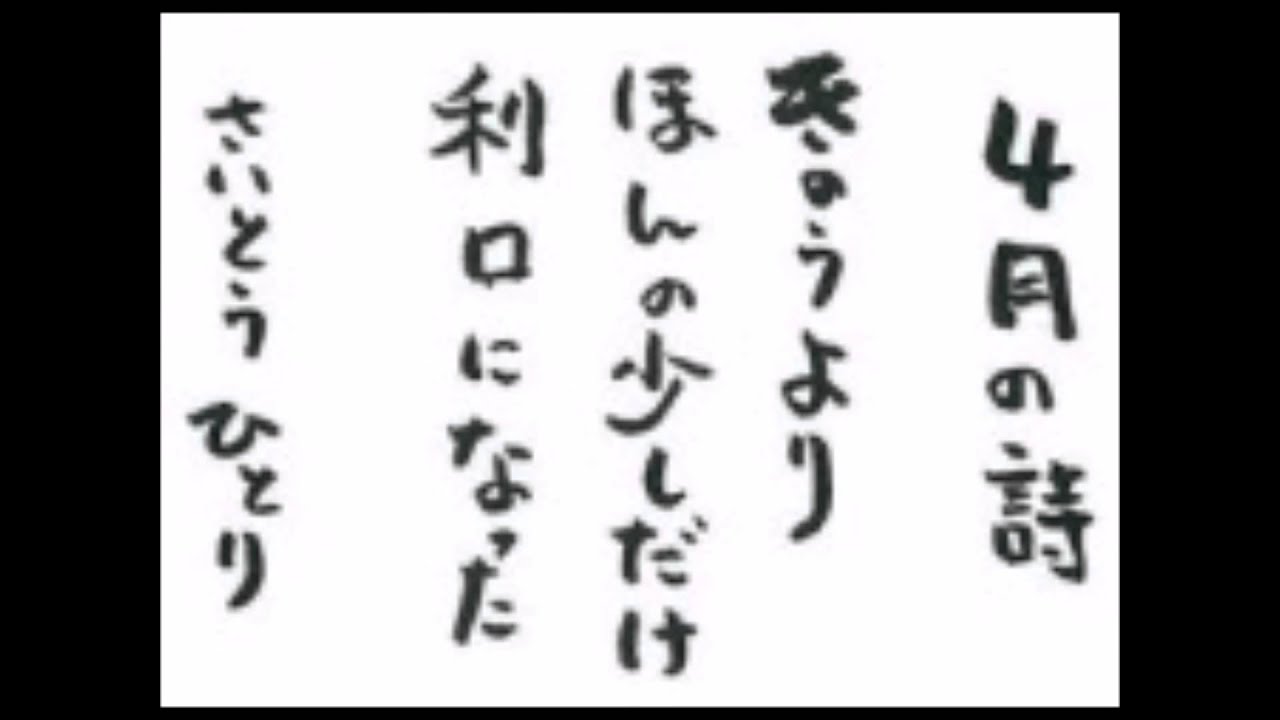 4月の詩
きのうより
ほんの少しだけ
利口になった
さいとうひとり